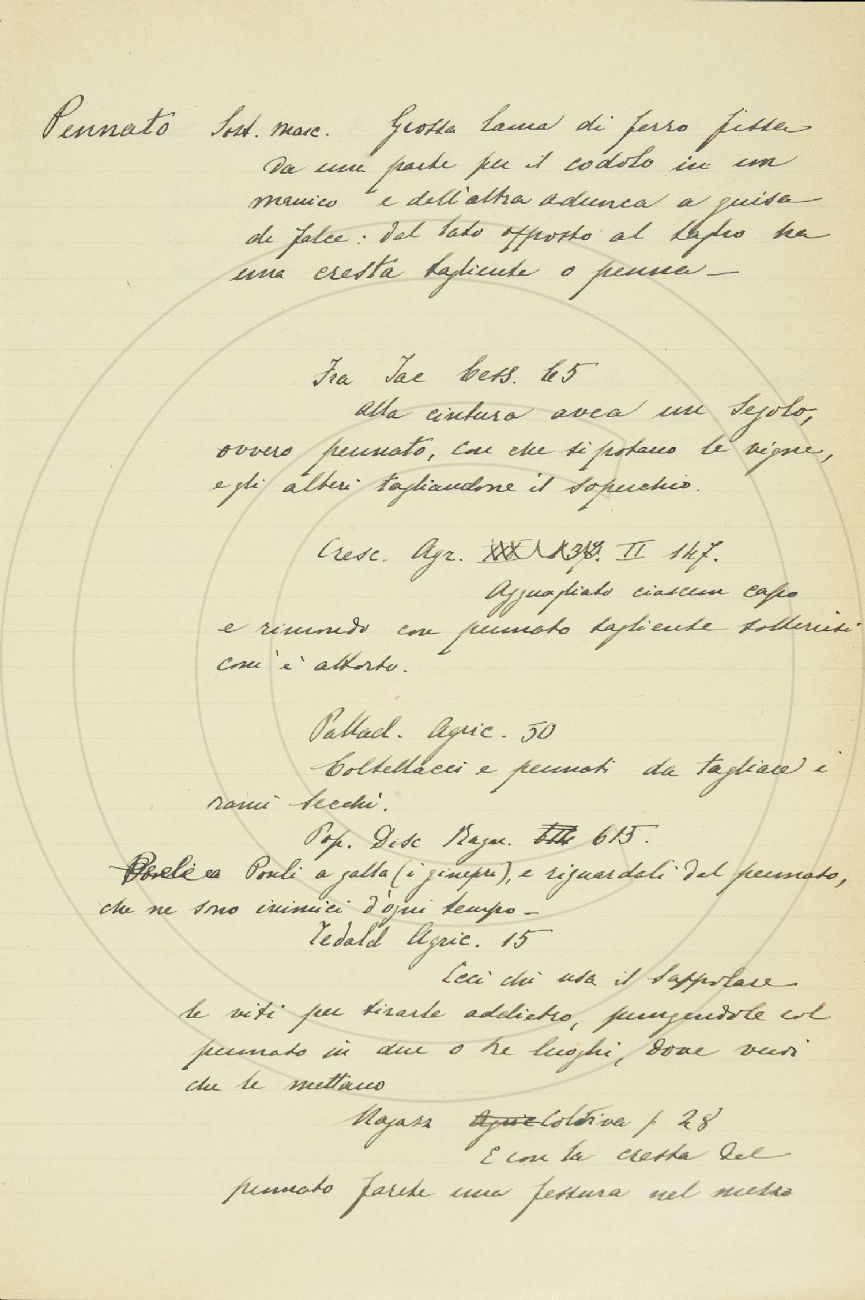 Pennato Sost. masc. Grossa lama di ferro fissa
da una parte per il codolo in un
manico e dell'altra adunca a guisa
di falce: dal lato opposto al taglio ha
una cresta tagliente o penna —
Fra Jac Cess. 65
Alla cintura avea un segolo,
ovvero pennato, con che si potano le vigne,
e gli alberi tagliandone il soperchio.
Cresc. Agr. II 147.
Agguagliato ciascun capo
e rimondo con pennato tagliente
com'è attorto.
Pallad. Agric. 50
Coltellacci e pennati da tagliare i
rami secchi.
Pop. Disc Ragu. 615.
Ponli a gatta (i ginepri), e riguardali dal pennato,
che ne sono inimici d'ogni tempo —
Tedald Agric. 15
Ecci chi usa il
le viti per tirarle addietro, pungendole col
pennato in due o tre luoghi, dove vuoi
che le mettano
Ragazz Agric Coltiva p 28
E con la cresta del
pennato farete una fessura nel mezzo